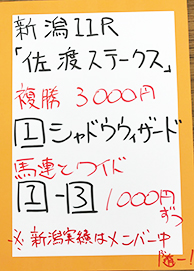 新潟11R
「佐渡ステークス」
複勝 3000円
1 シャドウウィザード
馬連とワイド
1-3 1000円
ずつ
※新潟実績はメンバー中
随一!